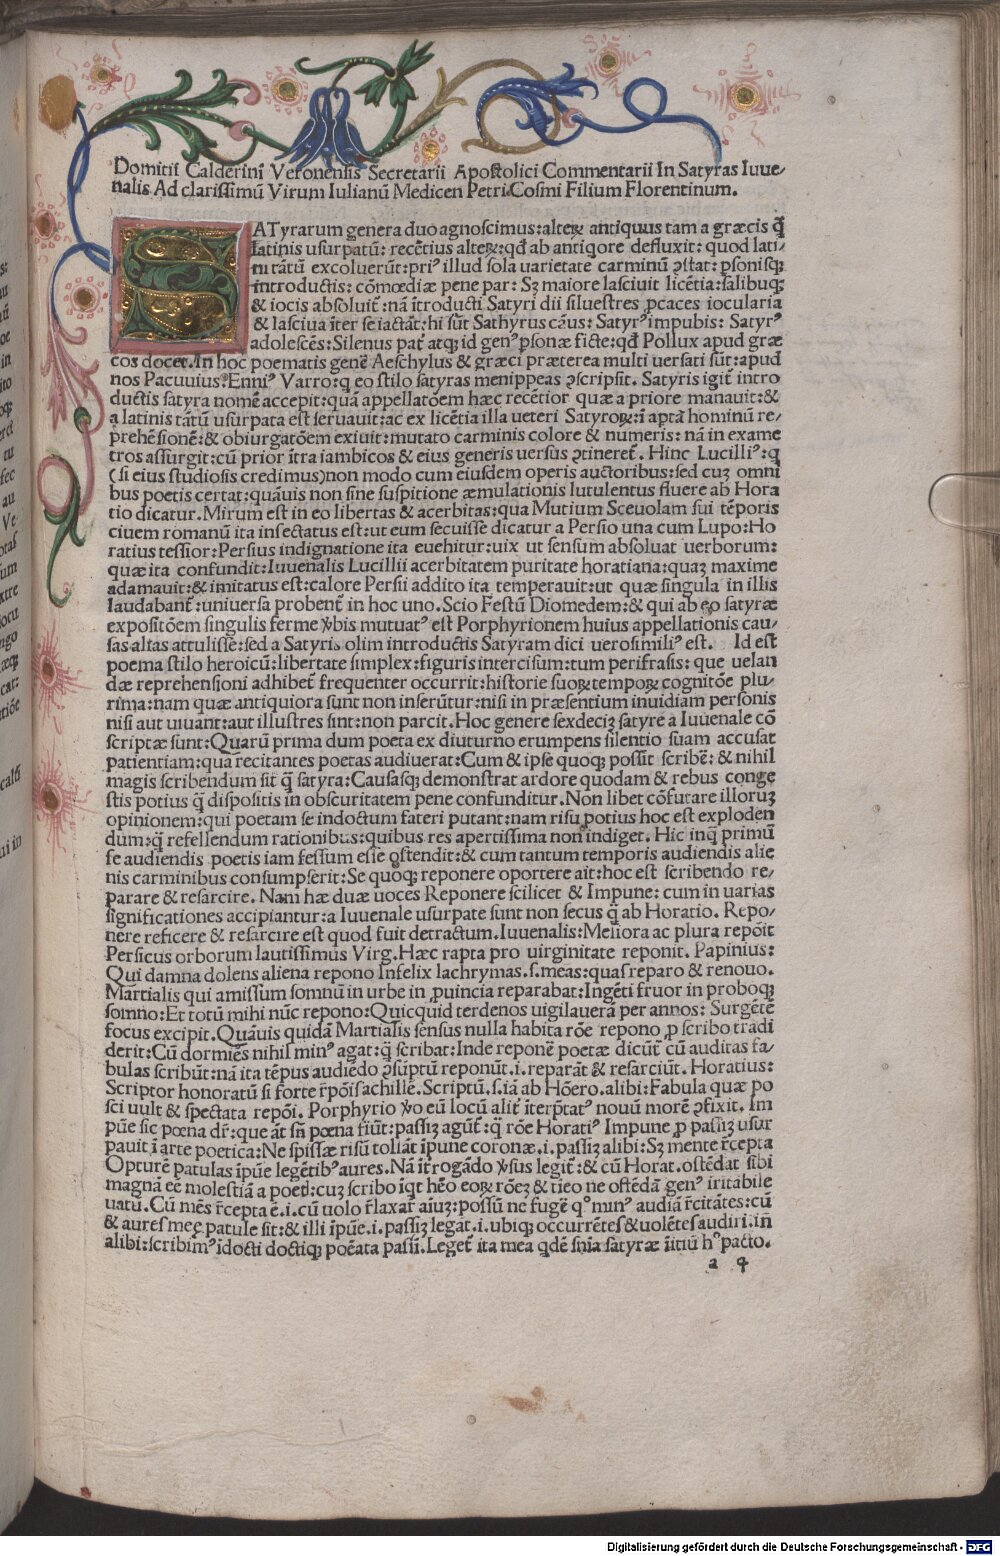 Domitii Calderini Veronensis Secretarii Apostolici Commentarii In Satyras Iuue/
nalis Ad clarissimũ Virum Iulianũ Medicen Petri Cosmi Filium Florentinum.
SATyrarum genera duo agnoscimus: alteꝝ antiquus tam a græcis q̃
latinis usurpatũ: recẽtius alteꝝ: qđ ab antiqore defluxit: quod lati/
ni tãtũ excoluerũt: priꝰ illud sola uarietate carminũ ꝯstat: ꝑsonisqꝫ
introductis: cõmœdiæ pene par: Sꝫ maiore lasciuit licẽtia: salibuqꝫ
& iocis absoluit̃: nã ĩtroducti Satyri dii siluestres ꝓcaces iocularia
& lasciua ĩter se iactãt: hi sũt Sathyrus cãus: Satyrꝰ impubis: Satyrꝰ
adolescẽs: Silenus pat̃ atqꝫ id genꝰ psonæ ficte: qđ Pollux apud græ
cos docet. In hoc poematis genẽ Aeschylus & græci præterea multi uersati sũt: apud
nos Pacuuius: Enniꝰ Varro: q eo stilo satyras menippeas ꝯscripsit. Satyris igit̃ intro
ductis satyra nomẽ accepit: quã appellatõem hæc recẽtior quæ a priore manauit: &
a latinis tãtũ usurpata est seruauit: ac ex licẽtia illa ueteri Satyroꝝ: ĩ aptã hominũ re/
prehẽsionẽ: & obiurgatõem exiuit: mutato carminis colore & numeris: nã in exame
tros assurgit: cũ prior ĩtra iambicos & eius generis uersus ꝯtineret̃. Hinc Lucilliꝰ: q
(si eius studiosis credimus) non modo cum eiusdem operis auctoribus: sed cuꝫ omni
bus poetis certat: quãuis non sine suspitione æmulationis lutulentus fluere ab Hora
tio dicatur. Mirum est in eo libertas & acerbitas: qua Mutium Sceuolam sui tẽporis
ciuem romanũ ita insectatus est: ut eum secuisse dicatur a Persio una cum Lupo: Ho
ratius tessior: Persius indignatione ita euehitur: uix ut sensum absoluat uerborum:
quæ ita confundit: Iuuenalis Lucillii acerbitatem puritate horatiana: quaꝫ maxime
adamauit: & imitatus est: calore Persii addito ita temperauit: ut quæ singula in illis
laudabant̃: uniuersa probent̃ in hoc uno. Scio Festũ Diomedem: & qui ab eo satyræ
expositõem singulis ferme ꝟbis mutuatꝰ est Porphyrionem huius appellationis cau/
sas alias attulisse: sed a Satyris olim introductis Satyram dici uerosimiliꝰ est. Id est
poema stilo heroicũ: libertate simplex: figuris intercisum: tum perifrasis: que uelan
dæ reprehensioni adhibet̃ frequenter occurrit: historie suoꝝ tempoꝝ cognitõe plu/
rima: nam quæ antiquiora sunt non inserũtur: nisi in præsentium inuidiam personis
nisi aut uiuant: aut illustres sint: non parcit. Hoc genere sexdeciꝫ satyre a Iuuenale cõ
scriptæ sunt: Quarũ prima dum poeta ex diuturno erumpens silentio suam accusat
patientiam: qua recitantes poetas audiuerat: Cum & ipse quoqꝫ possit scribẽ: & nihil
magis scribendum sit q̃ satyra: Causasqꝫ demonstrat ardore quodam & rebus conge
stis potius q̃ dispositis in obscuritatem pene confunditur. Non libet cõfutare illoruꝫ
opinionem: qui poetam se indoctum fateri putant: nam risu potius hoc est exploden
dum: q̃ refellendum rationibus: quibus res apertissima non indiget. Hic inq̃ primũ
se audiendis poetis iam fessum esse ostendit: & cum tantum temporis audiendis alie
nis carminibus consumpserit: Se quoqꝫ reponere oportere ait: hoc est scribendo re/
parare & resarcire. Nam hæ duæ uoces Reponere scilicet & Impune: cum in uarias
significationes accipiantur: a Iuuenale usurpate sunt non secus q̃ ab Horatio. Repo/
nere reficere & resarcire est quod fuit detractum. Iuuenalis: Meliora ac plura repõit
Persicus orborum lautissimus Virg. Hæc rapta pro uirginitate reponit. Papinius:
Qui damna dolens aliena repono Infelix lachrymas. s. meas: quas reparo & renouo.
Martialis qui amissum somnũ in urbe in ꝓuincia reparabat: Ingẽti fruor in proboqꝫ
somno: Et totũ mihi nũc repono: Quicquid terdenos uigilauerã per annos: Surgẽtẽ
focus excipit. Quãuis quidã Martialis sensus nulla habita rõe repono ꝓ scribo tradi
derit: Cũ dormiẽs nihil minꝰ agat: q̃ scribat: Inde reponẽ poetæ dicũt cũ auditas fa/
bulas scribũt: nã ita tẽpus audiẽdo ꝯsũptũ reponũt. i. reparãt & resarciũt. Horatius:
Scriptor honoratũ si forte r̃põis achillẽ. Scriptũ. s. iã ab Hõero. alibi: Fabula quæ po
sci uult & spectata repõi. Porphyrio ꝟo eũ locũ alit̃ ĩterp̃tatꝰ nouũ morẽ ꝯfixit. Im
pũe sic pœna dr̃: que ãt sñ pœna fiũt: passiꝫ agũt̃: q̃ rõe Horatiꝰ Impune ꝓ passiꝫ usur
pauit ĩ arte poetica: Ne spissæ risũ tollãt ĩpune coronæ. i. passiꝫ alibi: Sꝫ mente r̃cepta
Opturẽ patulas ĩpũe legẽtibꝰ aures. Nã ĩt̃rogãdo ꝟsus legit̃: & cũ Horat. ostẽdat sibi
magnã eẽ molestiã a poet: cuꝫ scribo ĩqt hẽo eoꝝ rõeꝫ & tieo ne ofẽdã genꝰ iritabile
uatũ. Cũ mẽs r̃cepta ẽ. i. cũ uolo r̃laxar̃ aiuꝫ: possũ ne fugẽ qº minꝰ audiã r̃citãtes: cũ
& aures meę patule sit: & illi ĩpũe. i. passiꝫ legãt. i. ubiqꝫ occurrẽtes & uolẽtes audiri. in
alibi: scribimꝰ ĩdocti doctiqꝫ poẽata passĩ. Leget̃ ita mea qdẽ sñia satyræ ĩitiũ hº pacto.
a q
Digitalisierung gefördert durch die Deutsche Forschungsgemeinschaft - DFG